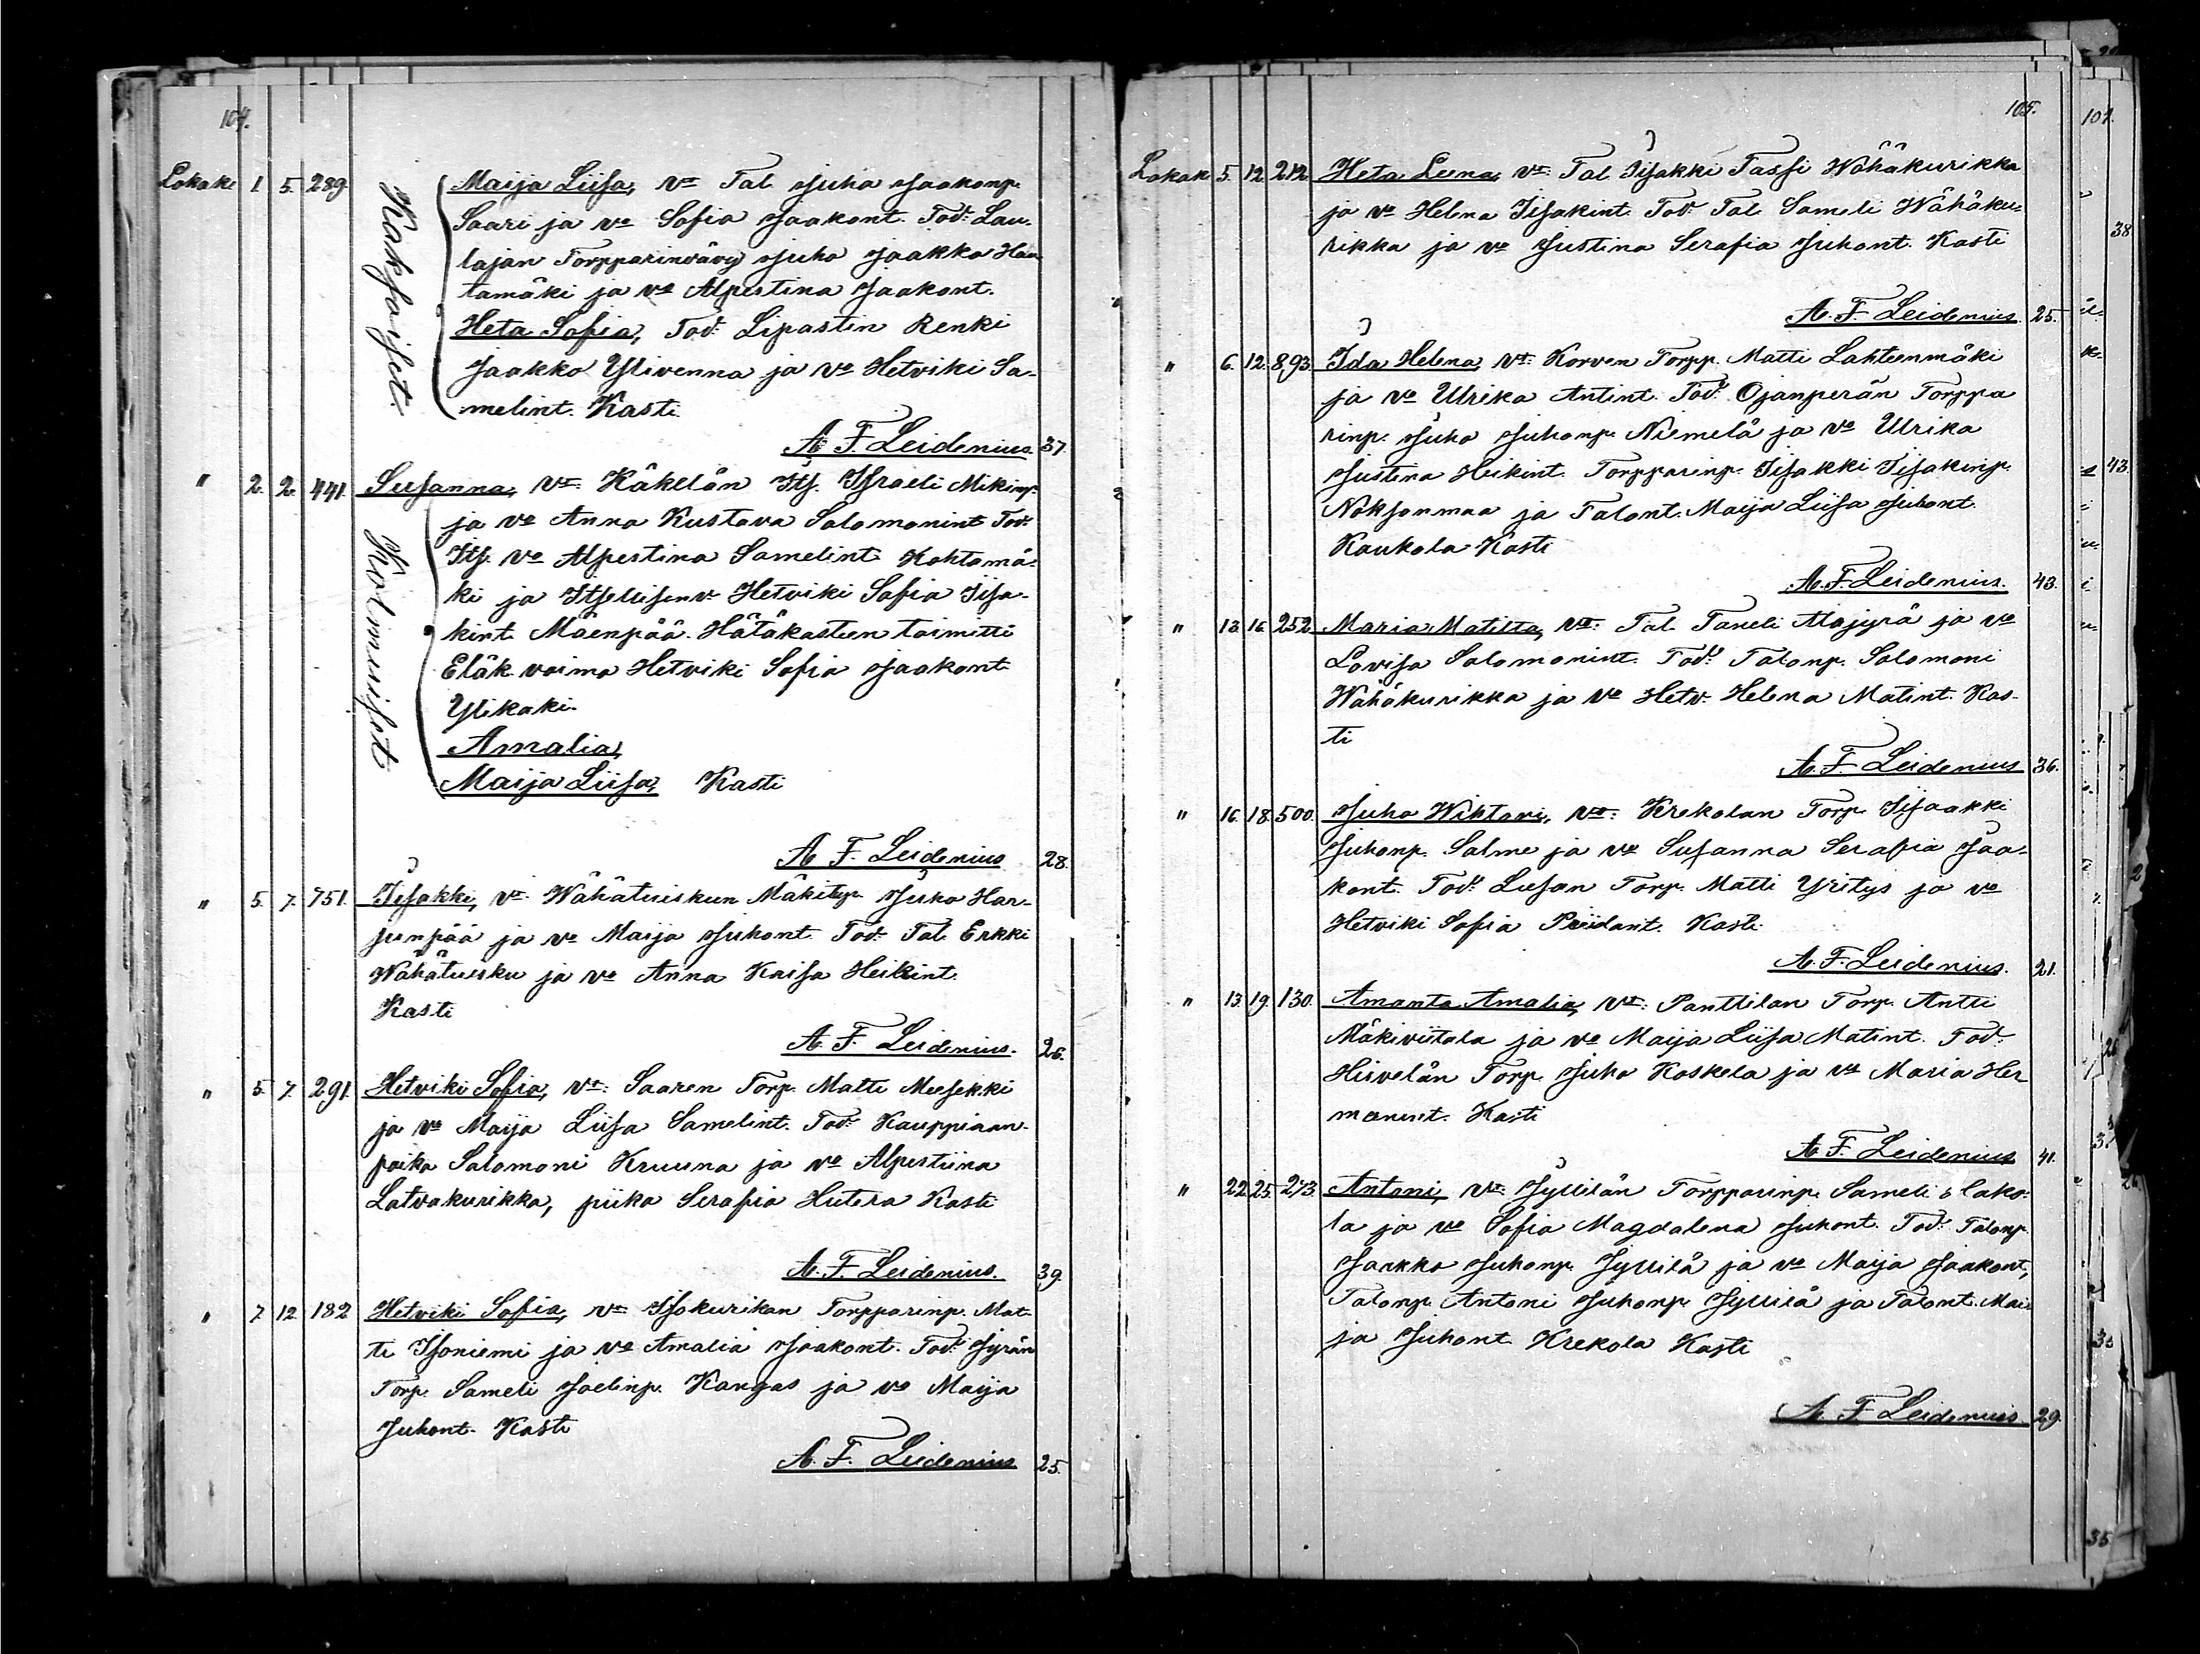 104.
Lokak. 1. 5. 289. Maija Liisa, vt. Tal. Juha Jaakonp.
Kaksoiset.
Saari ja vo Sofia Jaakont. Tod: Lau-
lajan Torpparinvävy Juho Jaakko Han
tamäki ja vo Alpertina Jaakont.
Heta Sofia, Tod: Lipastin Renki
Jaakko Ylivenna ja vo Hetviki Sa-
melint. Kasti
A. F. Leidenius. 37.
" 2. 2. 441. Susanna, vt. Käkelän Its. Israeli Mikinp.
Kolmoiset
ja vo Anna Kustava Salomonint. Tod:
Its. vo Alpertina Samelint. Kohtamä-
ki ja Itsellisenv. Hetviki Sofia Iisa-
kint. Mäenpää. Hätäkasteen toimitti
Eläk. vaimo Hetviki Sofia Jaakont.
Ylikaki.
Amalia,
Maija Liisa, Kasti
A. F. Leidenius 28.
" 5. 7. 751. Iisakki, vt. Wähätuiskun Mäkitp. Juho Har-
junpää ja vo Maija Juhont. Tod: Tal. Erkki
Wähätuisku ja vo Anna Kaisa Heikint.
Kasti
A. F. Leidenius. 26.
" 5. 7. 291. Hetviki Sofia, vt. Saaren Torp. Matti Meesekki
ja vo Maija Liisa Samelint. Tod: Kauppiaan-
poika Salomoni Kruuna ja vo Alpertiina
Latvakurikka, piika Serafia Hutera Kasti
A. F. Leidenius. 39.
" 7. 12. 182 Hetviki Sofia, vt. Isokurikan Torpparinp. Mat-
ti Isoniemi ja vo Amalia Jaakont. Tod: Jyrän
Torp. Sameli Joelinp. Kangas ja vo Maija
Juhont. Kasti
A. F. Leidenius 25.
105.
Lokak 5. 12. 212. Heta Leena, vt. Tal. Iisakki Tassi Wähäkurikka
ja vo Helena Iisakint. Tod: Tal. Sameli Wähäku-
rikka ja vo Justina Serafia Juhont. Kasti
A. F. Leidenius. 25.
" 6. 12. 893. Ida Helena, vt. Korven Torpp. Matti Lahteenmäki
ja vo Ulrika Antint. Tod: Ojanperän Torppa
rinp. Juho Juhonp. Niemelä ja vo Ulrika
Justina Heikint. Torpparinp. Iisakki Iisakinp.
Noksonmaa ja Talont. Maija Liisa Juhont.
Kaukola Kasti
A. F. Leidenius. 43.
" 13. 16. 252. Maria Matilta, vt. Tal. Taneli Alajyrä ja vo
Lovisa Salomonint. Tod: Talonp. Salomoni
Wähäkurikka ja vo Hetv. Helena Matint. Kas-
ti
A. F. Leidenius 36.
" 16. 18. 500. Juho Wihtori, vt. Krekolan Torp. Iisaakki
Juhonp. Salme ja vo Susanna Serafia Jaa-
kont. Tod: Luesan Torp. Matti Yritys ja vo
Hetviki Sofia Priidant. Kasti.
A. F. Leidenius. 21.
" 13. 19. 130. Amanta Amalia, vt. Panttilan Torp. Antti
Mäkiviitala ja vo Maija Liisa Matint. Tod:
Hirvelän Torp. Juho Koskela ja vo Maria Her-
manint. Kasti
A. F. Leidenius 41.
" 22. 25. 273. Antoni, vt. Jyllilän Torpparinp. Sameli
la ja vo Sofia Magdalena Juhont. Tod: Talonp.
Jaakko Juhonp. Jyllilä ja vo Maija Jaakont,
Talonp. Antoni Juhonp. Jyllilä ja Talont. Mai
ja Juhont. Krekola Kasti
A. F. Leidenius 29.